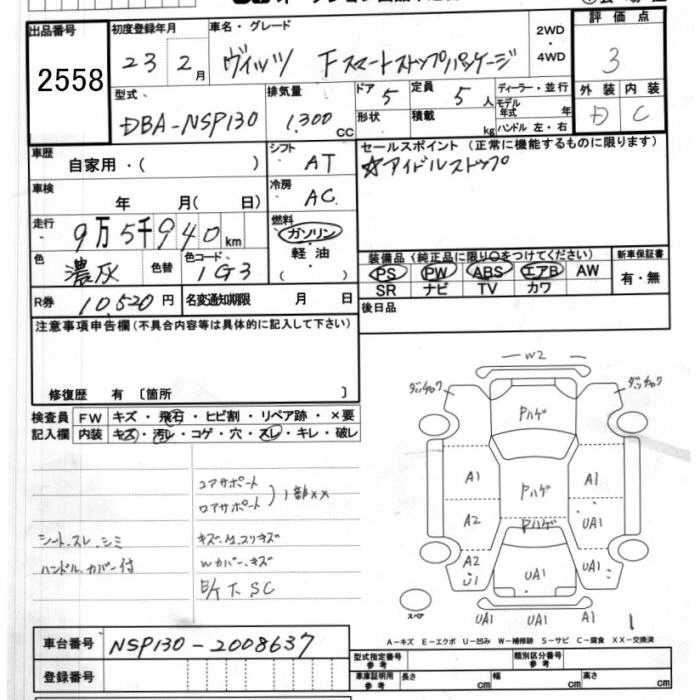 出品番号
2558
初度登録年月
23 2月
車名・グレード
ヴィッツ Fスマートストップパッケージ
2WD・4WD
評価点
3
外装 内装
D C
型式
DBA-NSP130
排気量
1,300 CC
ドア 5
定員 5 人
形状
積載 kg
ディーラー・並行
モデル年式 年
ハンドル 左・右
車歴 自家用・( )
シフト AT
セールスポイント (正常に機能するものに限ります)
☆アイドルストップ
車検 年 月( 日)
冷房 AC
走行 9万5千940km
燃料 ガソリン・軽油
色 濃灰 色替
色コード 1G3
装備品(純正品に限り○をつけてください)
PS PW ABS エアB AW
SR ナビ TV カワ
新車保証書
有・無
R券 10,520円
名変通知期限 月 日
後日品
注意事項申告欄(不具合内容等は具体的に記入して下さい)
修復歴 有〔箇所 〕
検査員記入欄
FW キズ・飛石・ヒビ割・リペア跡・×要
内装 キズ・汚レ・コゲ・穴・スレ・キレ・破レ
コアサポート
ロアサポート ) 1部××
シート、スレ、シミ
ハンドル、カバー付
Wカバー、キズ
W2
ダッチロク ダッチロク
Pハゲ
A1 Pハゲ A1
A2 Pハゲ UA1
A2 U1 UA1 UA1
UA1 UA1 A1
スペア
1
A−キズ E−エクボ U−凹み W−補修跡 S−サビ C−腐食 XX−交換済
車台番号 NSP130-2008637
登録番号
型式指定番号 参考
類別区分番号 参考
車庫証明用 参考 長さ cm 幅 cm 高さ cm